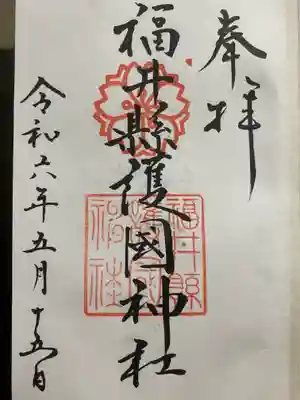 奉拝
福井縣護國神社
令和六年五月十五日
福井縣護國神社